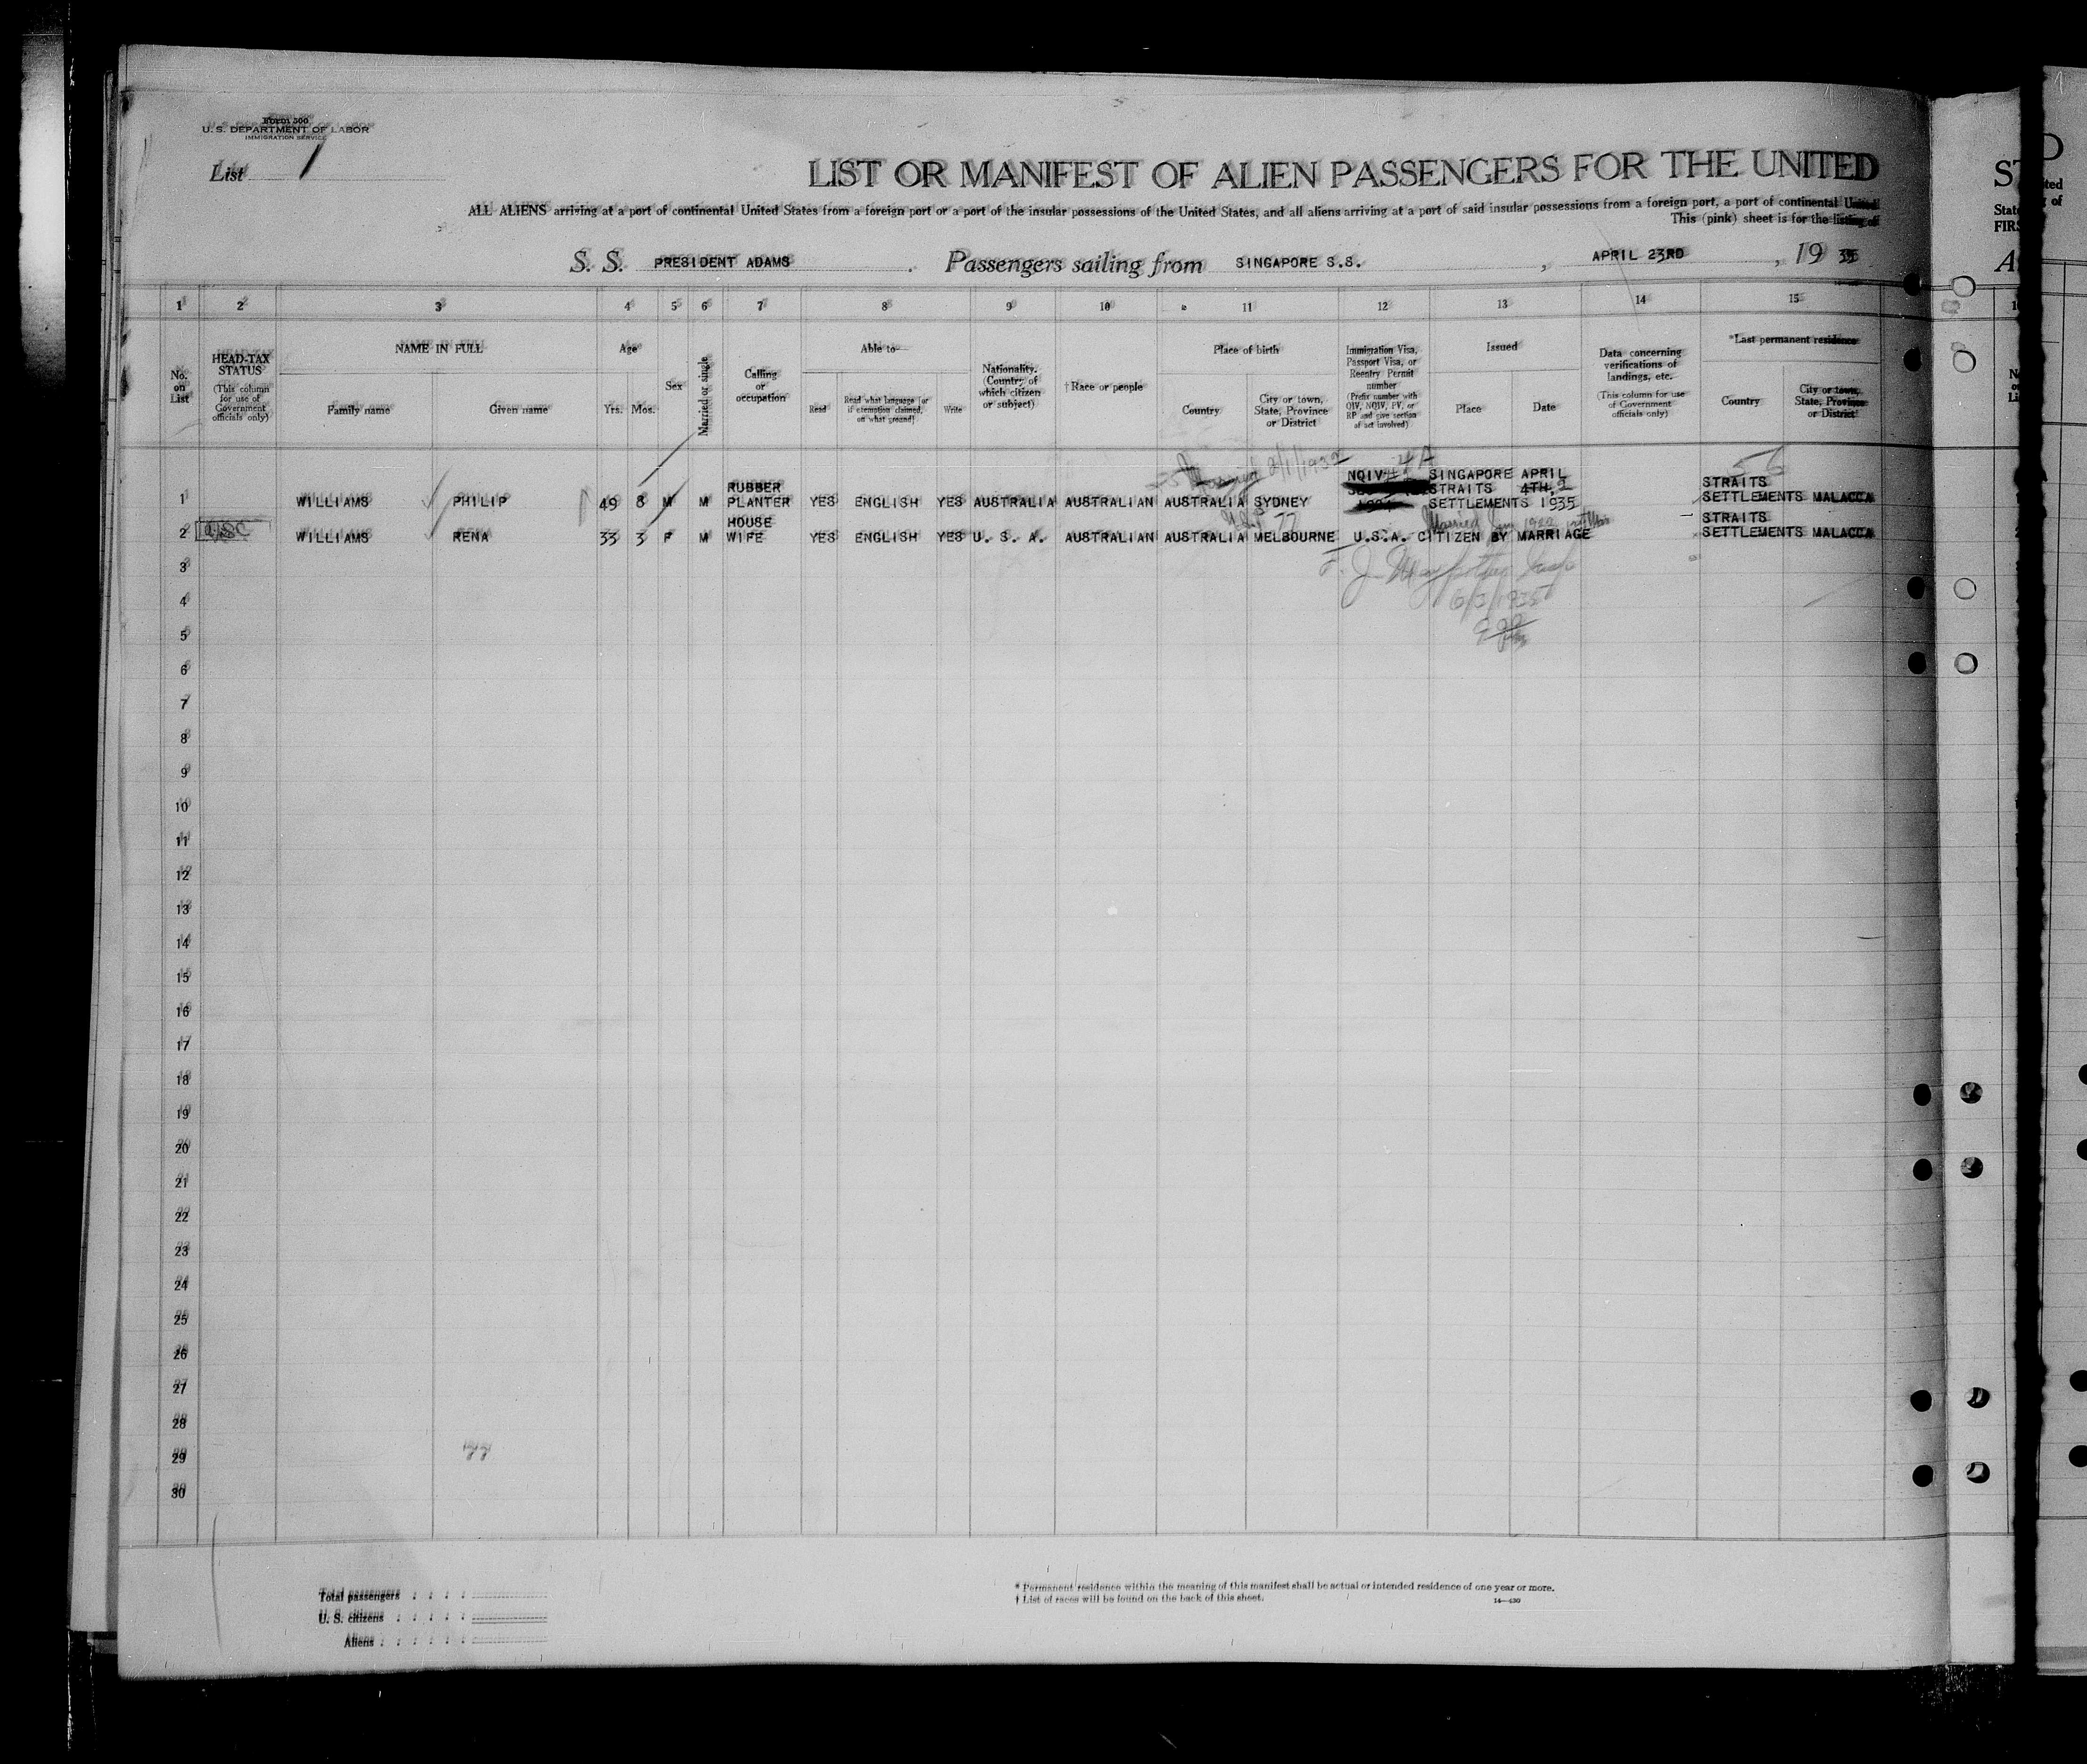 Form 500
U. S. DEPARTMENT OF LABOR
IMMIGRATION SERVICE
List 1
LIST OR MANIFEST OF ALIEN PASSENGERS FOR THE UNITED
ALL ALIENS arriving at a port of continental United States from a foreign port or a port of the insular possessions of the United States, and all aliens arriving at a port of said insular possessions from a foreign port, a port of continental United
This (pink) sheet is for the listing of
S. S. PRESIDENT ADAMS. Passengers sailing from SINGAPORE S.S., APRIL 23RD, 19 35
1 2 3 4 5 6 7 8 9 10 11 12 13 14 15
No. on List
HEAD-TAX STATUS
(This column for use of Government officials only)
NAME IN FULL
Family name Given name
Age
Yrs. Mos.
Sex
Married or single
Calling or occupation
Able to—
Read
Read what language (or if exemption claimed, on what ground)
Write
Nationality. (Country of which citizen or subject)
†Race or people
Place of birth
Country
City or town, State, Province or District
Immigration Visa, Passport Visa, or Reentry Permit number
(Prefix number with QIV, NQIV, PV, or RP and give section of act involved)
Issued
Place Date
Data concerning verifications of landings, etc.
(This column for use of Government officials only)
*Last permanent residence
Country
City or town, State, Province or District
56
1 WILLIAMS PHILIP 49 8 M M RUBBER PLANTER YES ENGLISH YES AUSTRALIA AUSTRALIAN AUSTRALIA SYDNEY NQIV SINGAPORE STRAITS SETTLEMENTS APRIL 4TH, 1935 STRAITS SETTLEMENTS MALACCA
2 USC WILLIAMS RENA 33 3 F M HOUSE WIFE YES ENGLISH YES U. S. A. AUSTRALIAN AUSTRALIA MELBOURNE U.S.A. CITIZEN BY MARRIAGE STRAITS SETTLEMENTS MALACCA
3
4
5
6
7
8
9
10
11
12
13
14
15
16
17
18
19
20
21
22
23
24
25
26
27
28
29
30
Total passengers
U. S. citizens
Aliens
* Permanent residence within the meaning of this manifest shall be actual or intended residence of one year or more.
† List of races will be found on the back of this sheet.
14—430